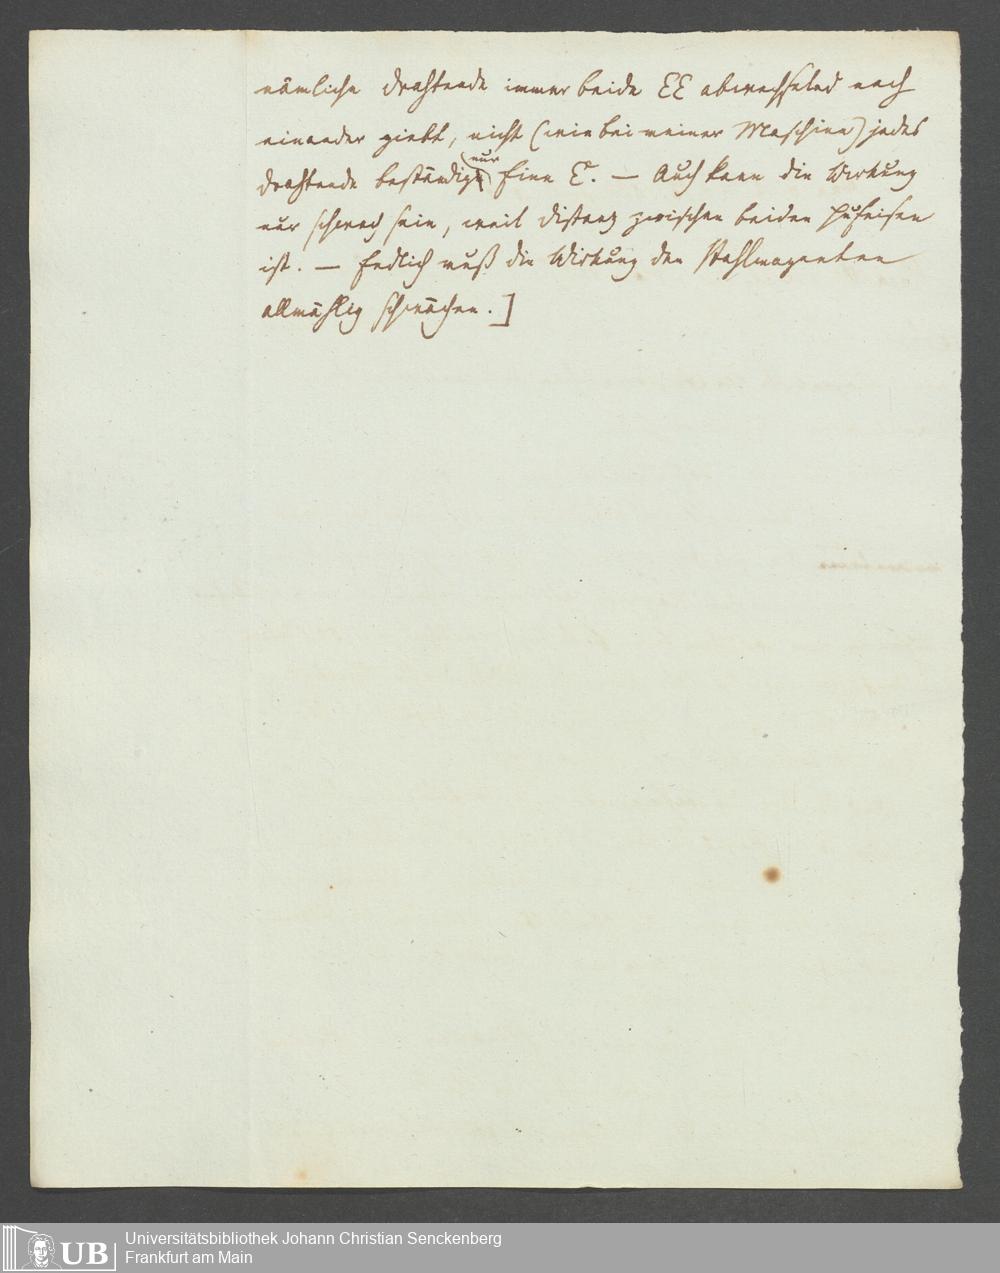 nämliche Drahtende immer beide EE abwechselnd nach
einander giebt, nicht (wie bei meiner Maschine) jedes
nur
Drahtende beständig Eine E. — Auch kann die Wirkung
nur schwach sein, weil Distanz zwischen beiden Hufeisen
ist. — Endlich muß die Wirkung den Stahlmagneten
allmählig schwächen.]
UB
Universitätsbibliothek Johann Christian Senckenberg
Frankfurt am Main